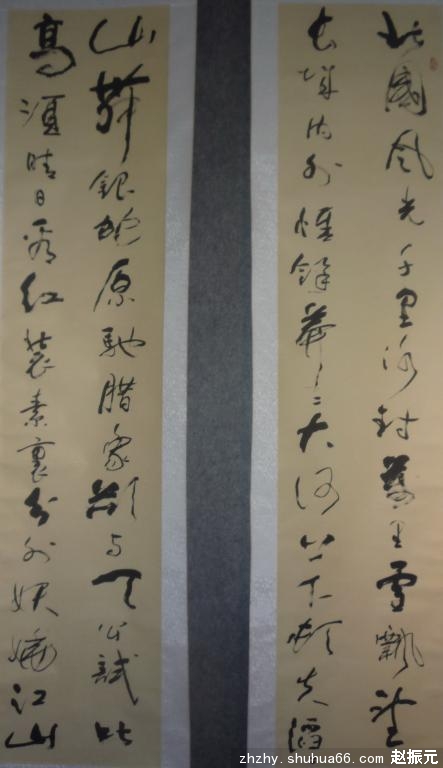 北國风光千里冰封萬里雪飄望
长城内外惟餘莽〻大河上下頓失滔
山舞銀蛇原馳腊象欲与天公試比
高須晴日看红裝素裹分外妖嬈江山
zhzhy.shuhua66.com 赵振元